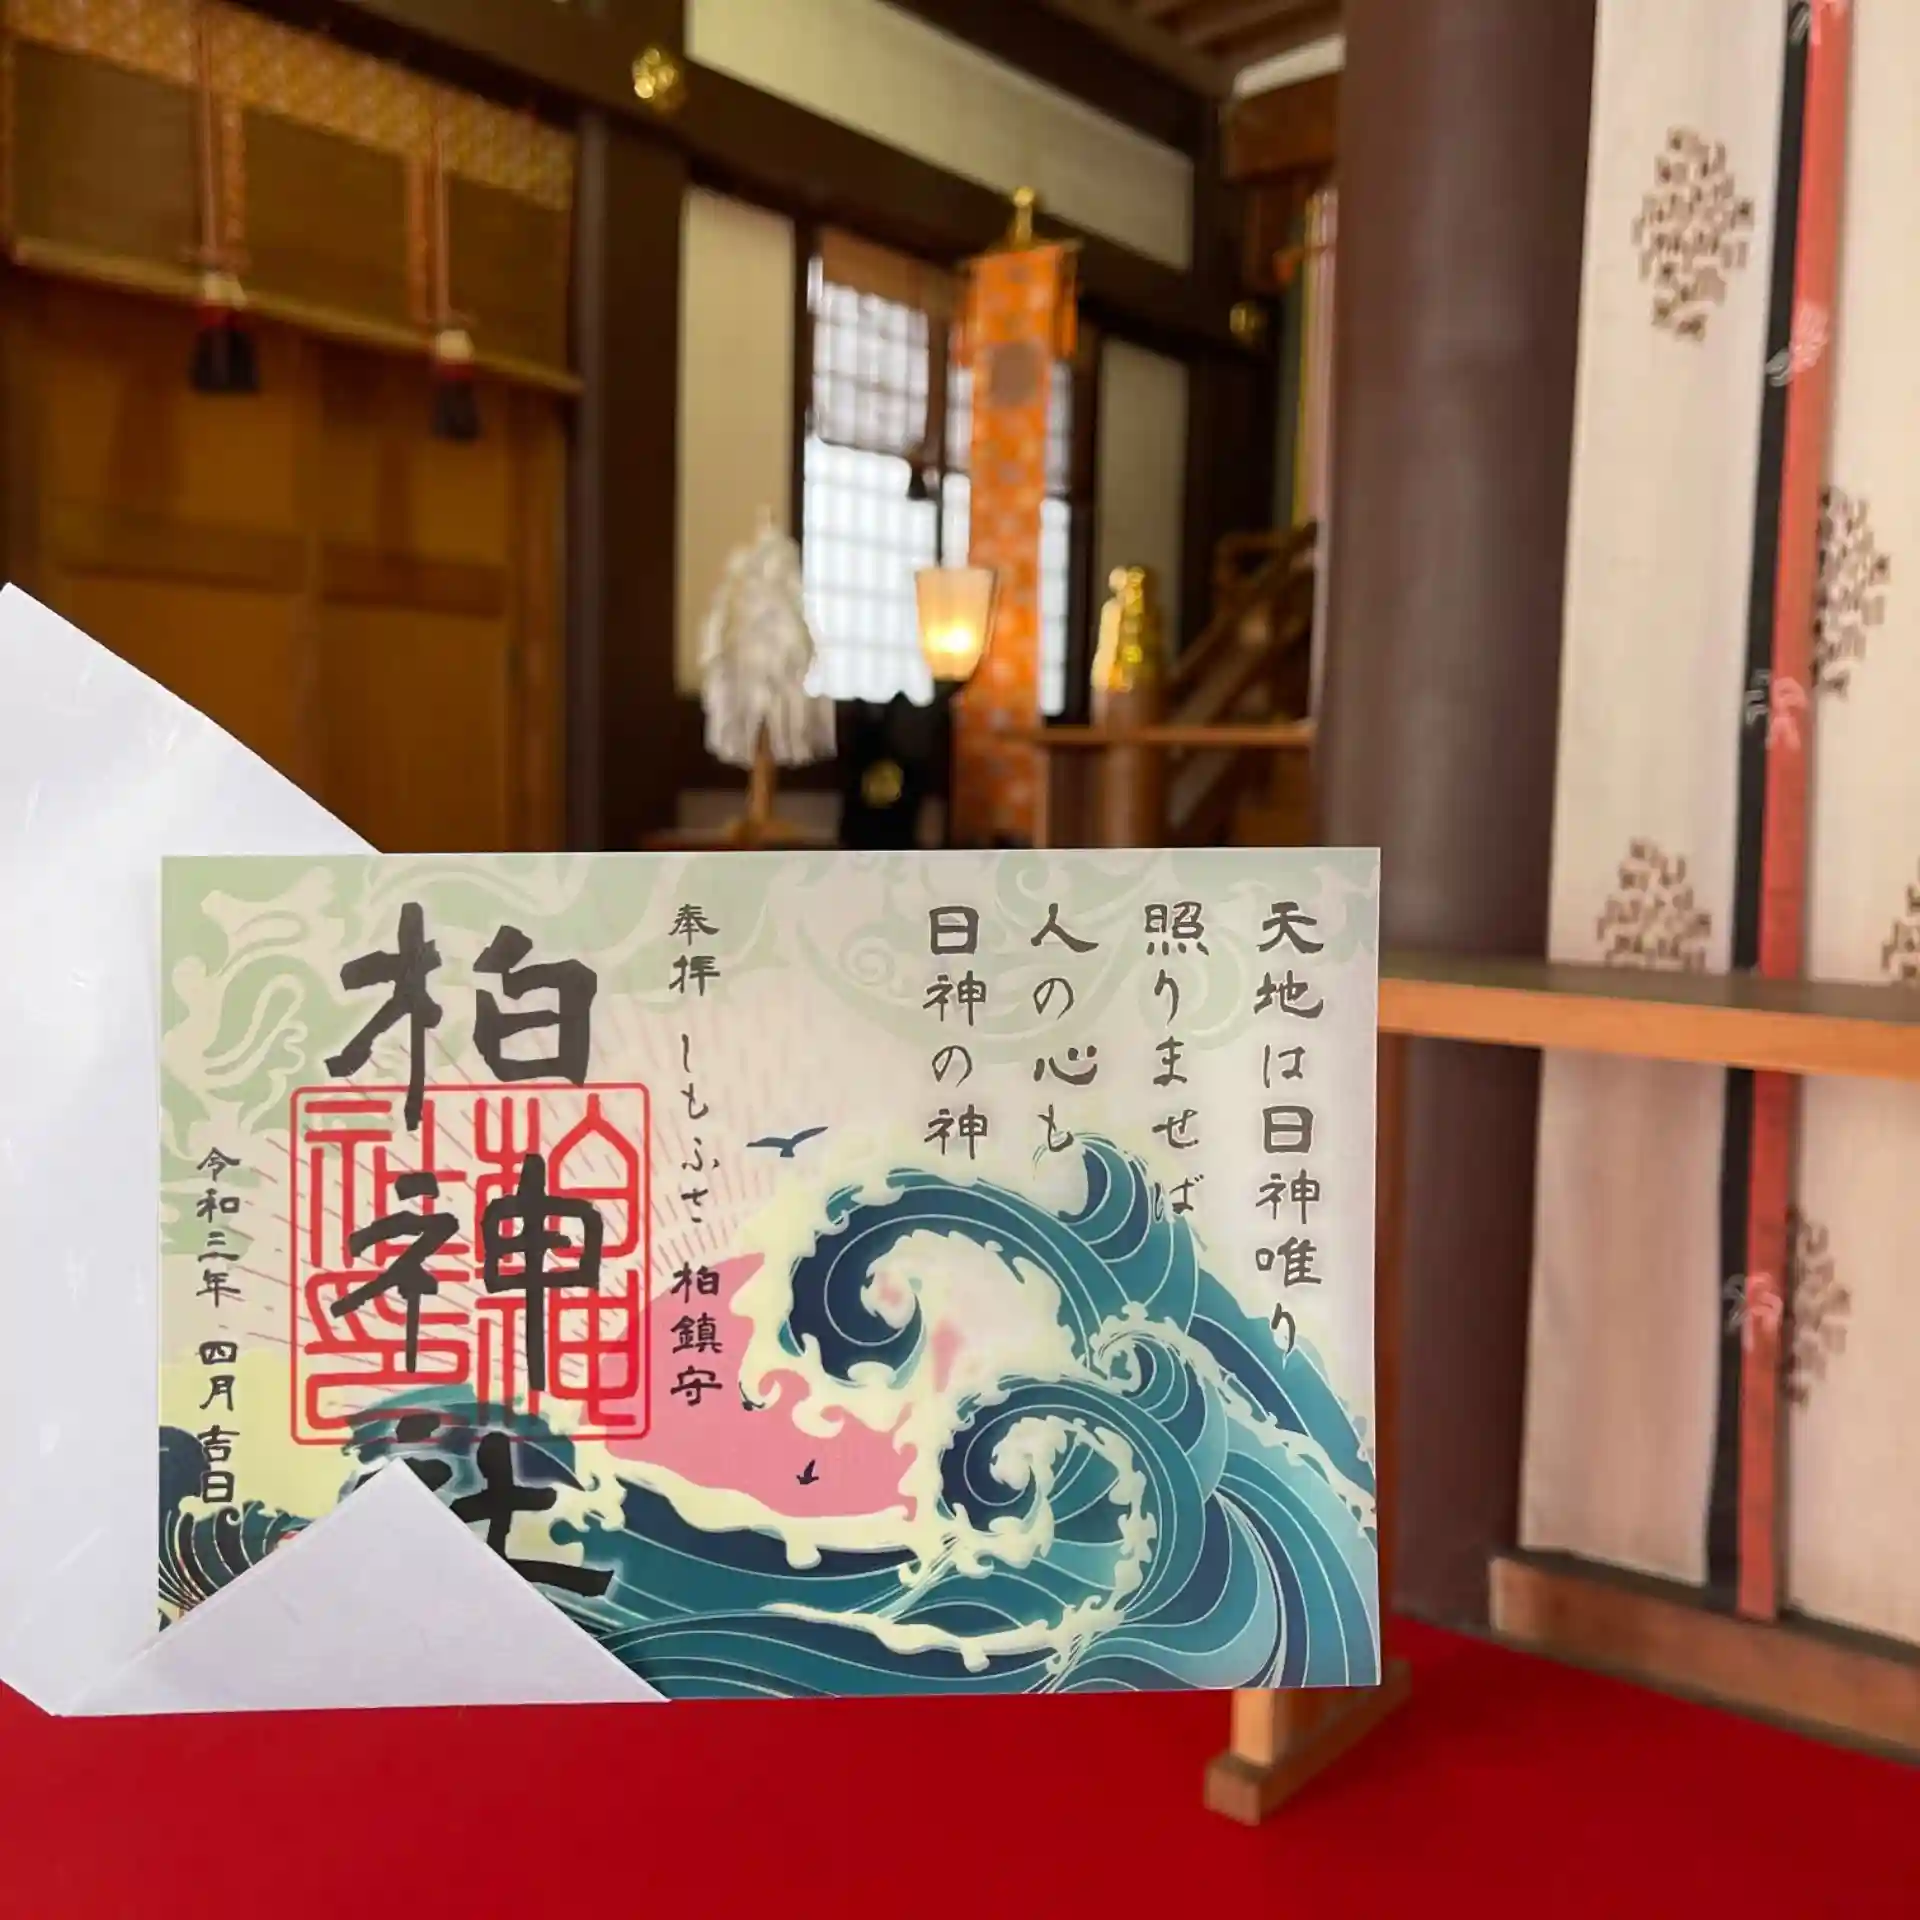 天地は日神唯り
照りませば
人の心も
日神の神
奉拝 しもふさ 柏鎮守
柏神社
柏神社印
令和三年 四月吉日